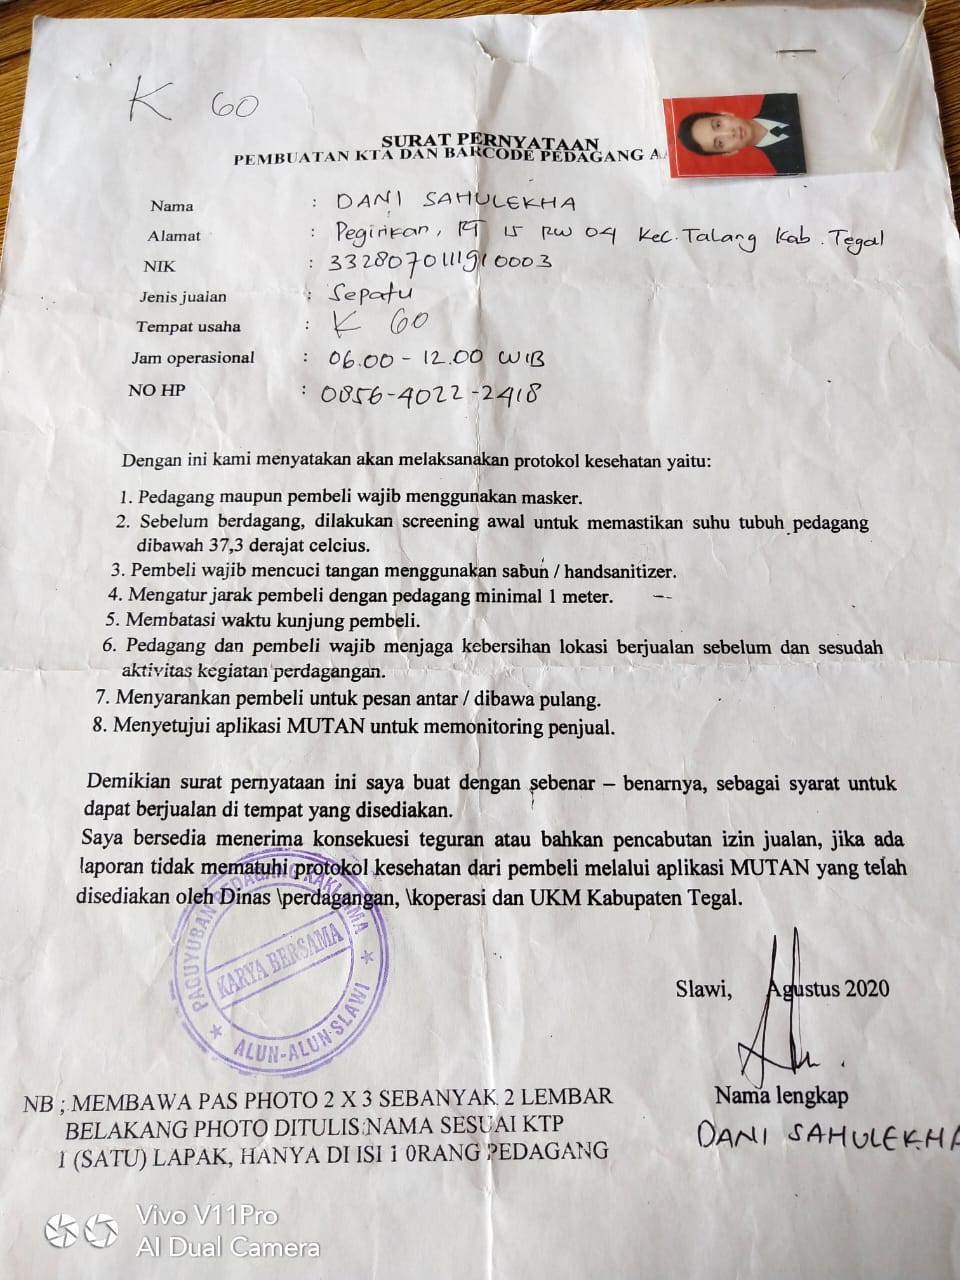 K 60
SURAT PERNYATAAN
PEMBUATAN KTA DAN BARCODE PEDAGANG
Nama : DANI SAHULEKHA
Alamat : Pegirikan, RT 15 RW 04 Kec. Talang Kab. Tegal
NIK : 3328070111910003
Jenis jualan : Sepatu
Tempat usaha : K 60
Jam operasional : 06.00 - 12.00 WIB
NO HP : 0856-4022-2418
Dengan ini kami menyatakan akan melaksanakan protokol kesehatan yaitu:
1. Pedagang maupun pembeli wajib menggunakan masker.
2. Sebelum berdagang, dilakukan screening awal untuk memastikan suhu tubuh pedagang
dibawah 37,3 derajat celcius.
3. Pembeli wajib mencuci tangan menggunakan sabun / handsanitizer.
4. Mengatur jarak pembeli dengan pedagang minimal 1 meter.
5. Membatasi waktu kunjung pembeli.
6. Pedagang dan pembeli wajib menjaga kebersihan lokasi berjualan sebelum dan sesudah
aktivitas kegiatan perdagangan.
7. Menyarankan pembeli untuk pesan antar / dibawa pulang.
8. Menyetujui aplikasi MUTAN untuk memonitoring penjual.
Demikian surat pernyataan ini saya buat dengan sebenar – benarnya, sebagai syarat untuk
dapat berjualan di tempat yang disediakan.
Saya bersedia menerima konsekuesi teguran atau bahkan pencabutan izin jualan, jika ada
laporan tidak mematuhi protokol kesehatan dari pembeli melalui aplikasi MUTAN yang telah
disediakan oleh Dinas \perdagangan, \koperasi dan UKM Kabupaten Tegal.
PAGUYUBAN PEDAGANG KAKI LIMA
KARYA BERSAMA
ALUN-ALUN SLAWI
Slawi, Agustus 2020
Nama lengkap
DANI SAHULEKHA
NB ; MEMBAWA PAS PHOTO 2 X 3 SEBANYAK 2 LEMBAR
BELAKANG PHOTO DITULIS NAMA SESUAI KTP
1 (SATU) LAPAK, HANYA DI ISI 1 0RANG PEDAGANG
Vivo V11Pro
AI Dual Camera